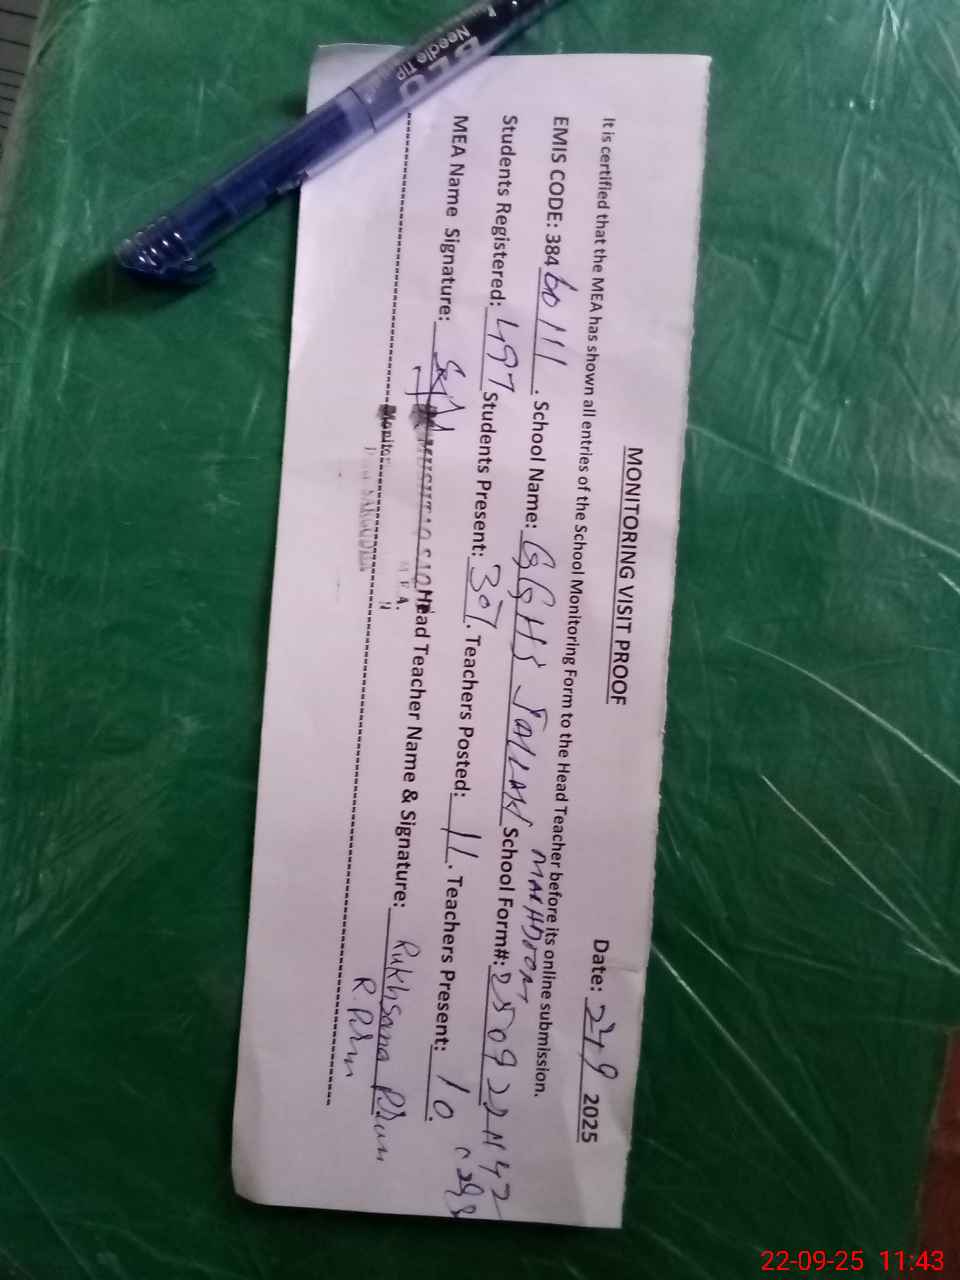 MONITORING VISIT PROOF
Date: 22-9 2025
It is certified that the MEA has shown all entries of the School Monitoring Form to the Head Teacher before its online submission.
EMIS CODE: 38460111. School Name: GGHS JALLAH MAKHDOOM School Form#: 25092211 42
Students Registered: 497 Students Present: 307. Teachers Posted: 11. Teachers Present: 10.
MEA Name Signature: Head Teacher Name & Signature: Rukhsana
M.E.A.
Monitor
SARGODHA
BLU
Needle TIP
22-09-25 11:43